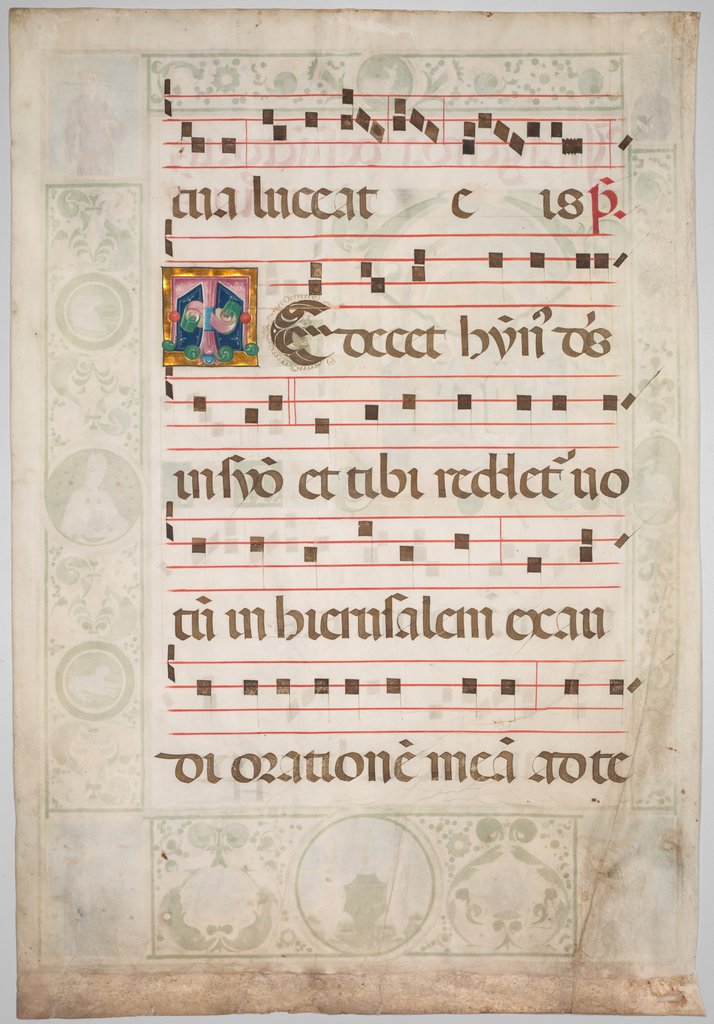 tua luceat e is p̄.
TE decet hyñ d̄s
in syō et tibi reddet᷑ uo
tū in hierusalem exau
di orationē meā ad te